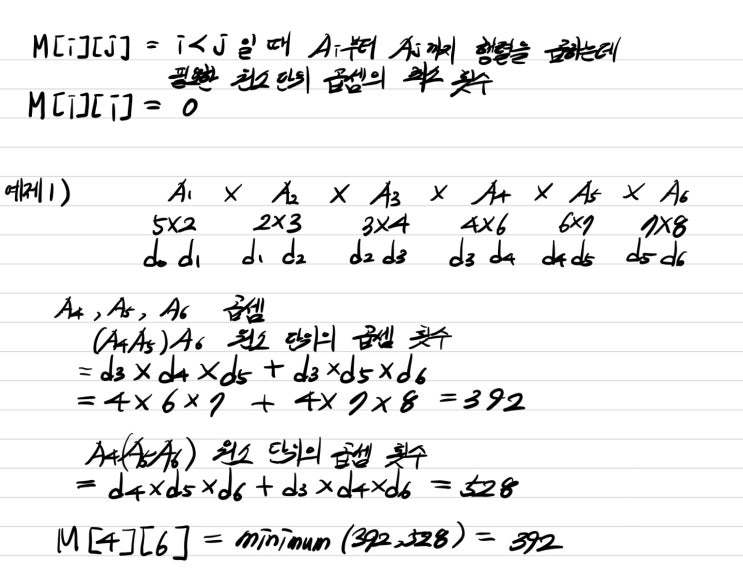 M[i][j] = i<j 일 때 Ai부터 Aj까지 행렬을 곱하는데
필요한 원소 단위 곱셈의 최소 횟수
M[i][i] = 0
예제1) A1 × A2 × A3 × A4 × A5 × A6
5×2 2×3 3×4 4×6 6×7 7×8
d0 d1 d1 d2 d2 d3 d3 d4 d4 d5 d5 d6
A4, A5, A6 곱셈
(A4A5)A6 원소 단위의 곱셈 횟수
= d3 × d4 × d5 + d3 × d5 × d6
= 4 × 6 × 7 + 4 × 7 × 8 = 392
A4(A5A6) 원소 단위의 곱셈 횟수
= d4×d5×d6 + d3 ×d4×d6 = 528
M[4][6] = minimum (392,528) = 392